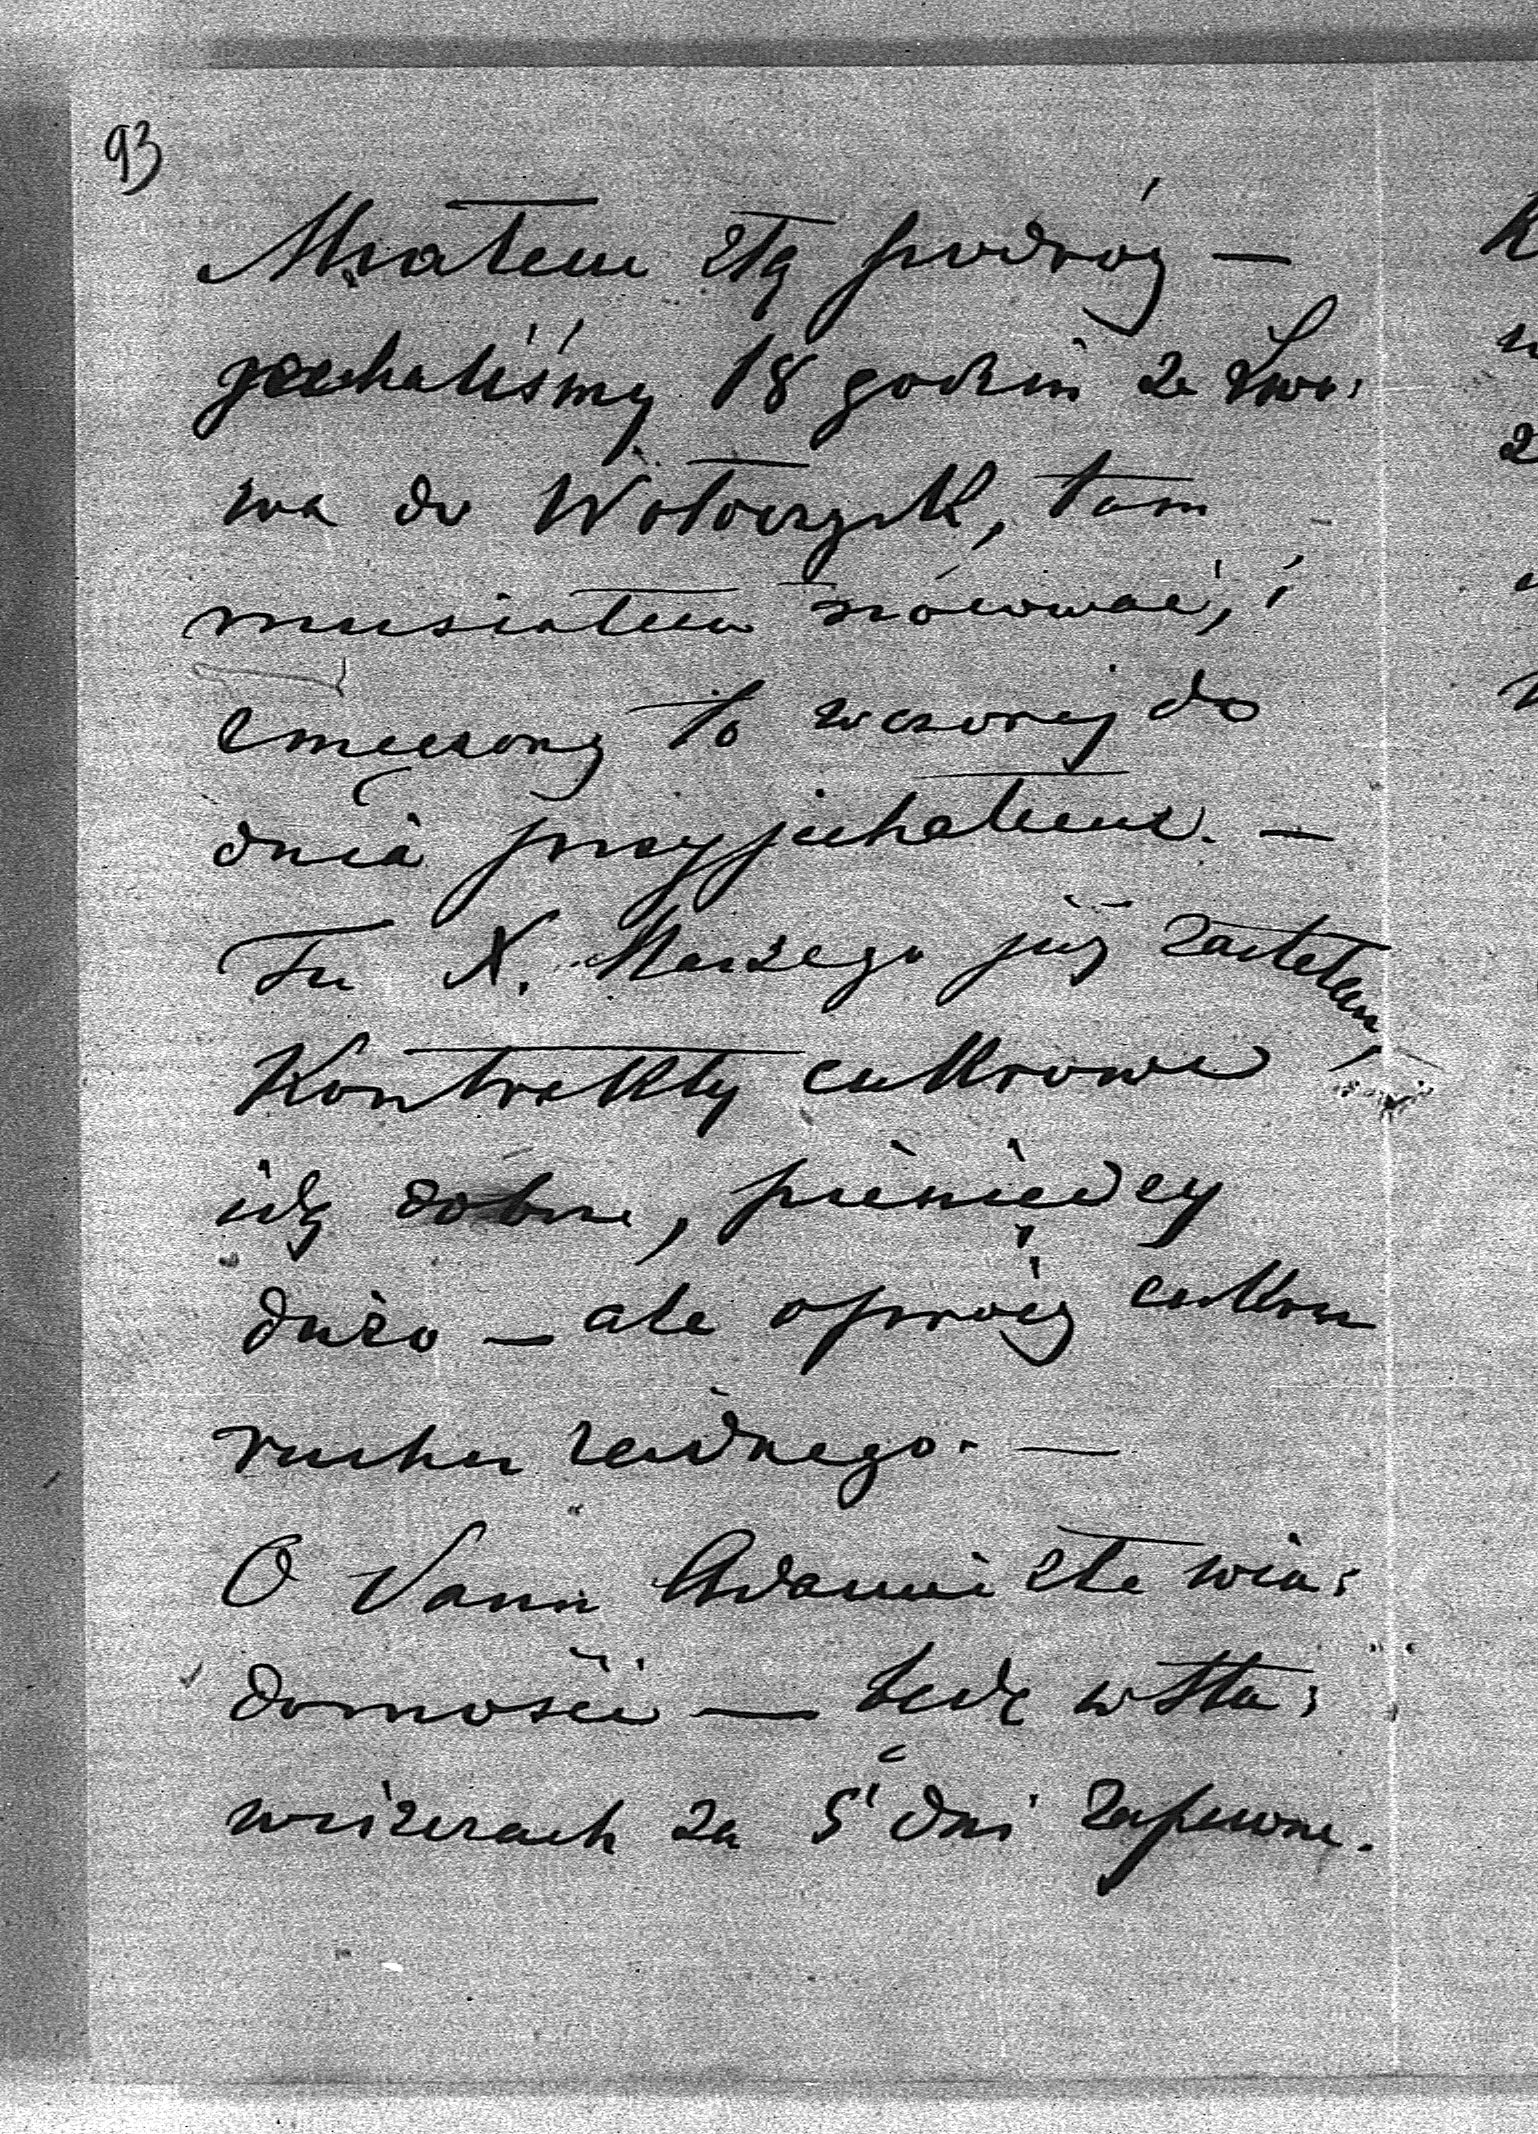 93
Miałem złą podróż —
jechaliśmy 18 godzin ze Lwo-
wa do Wołoczysk, tam
musiałem nocować, i
zmęczony to wczoraj do
dnia przyjechałem. —
Tu X. już zastałem,
Kontrakty cukrowe
idą dobrze, pieniędzy
dużo — ale oprócz cukru
ruchu żadnego. —
O Panu Adamie złe wia-
domości — będę w Sła-
za 5 dni zapewne.